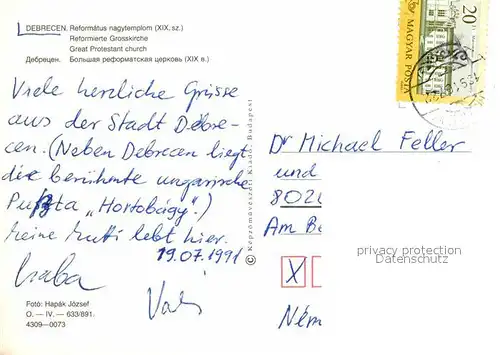 DEBRECEN. Református nagytemplom (XIX. sz.)
Reformierte Grosskirche
Great Protestant church
Дебрецен. Большая реформатская церковь (XIX в.)
Viele herzliche Grüsse
aus der Stadt Debre-
cen. (Neben Debrecen liegt
die berühmte ungarische
Puszta „Hortobágy".)
Meine Mutti lebt hier.
19.07.1991
Csaba
Fotó: Hapák József
O. — IV. — 633/891.
4309—0073
© Képzőművészeti Kiadó, Budapest
20
MAGYAR POSTA
Dr Michael Feller
und
802
Am Be
privacy protection
Datenschutz
X
Ném